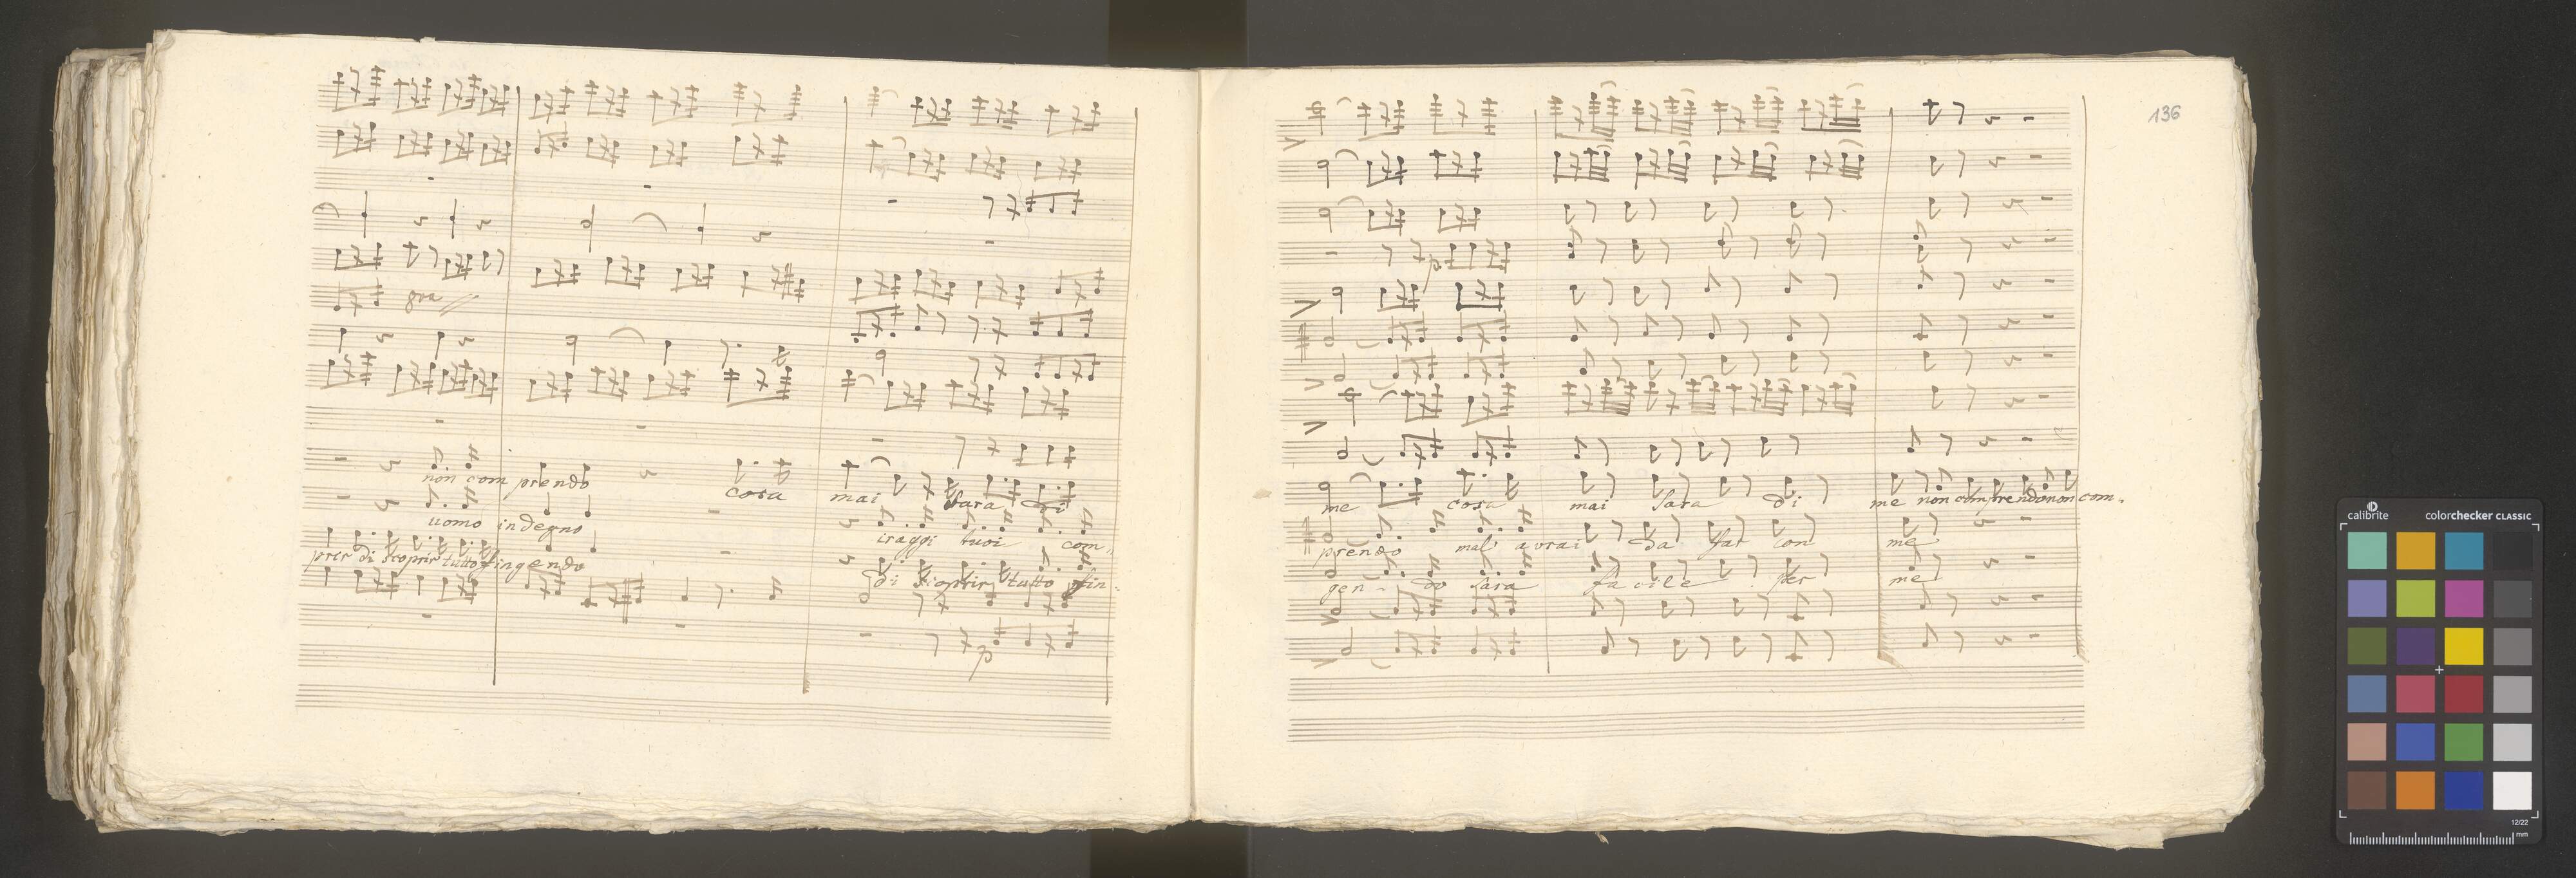 8va
non comprendo cosa mai sara di
uomo indegno iraggi tuoi com
prir di scoprir tutto fingendo di scoprir tutto fin
p
136
p
me cosa mai sara di me non comprendo non com
prendo mal' avrai da far con me
gen do sara facile per me
calibrite colorchecker CLASSIC
12/22
mm